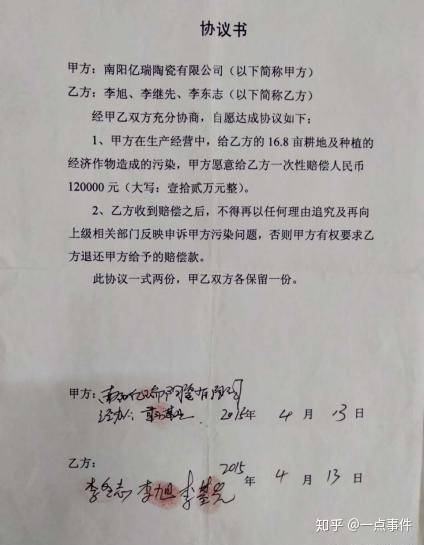 协议书
甲方：南阳亿瑞陶瓷有限公司（以下简称甲方）
乙方：李旭、李继先、李东志（以下简称乙方）
经甲乙双方充分协商，自愿达成协议如下：
1、甲方在生产经营中，给乙方的 16.8 亩耕地及种植的
经济作物造成的污染，甲方愿意给乙方一次性赔偿人民币
120000 元（大写：壹拾贰万元整）。
2、乙方收到赔偿之后，不得再以任何理由追究及再向
上级相关部门反映申诉甲方污染问题，否则甲方有权要求乙
方退还甲方给予的赔偿款。
此协议一式两份，甲乙双方各保留一份。
甲方：南阳亿瑞陶瓷有限公司
经办人： 2015年 4 月 13 日
乙方： 2015 年 4 月 13 日
李东志 李旭 李继先
知乎 @一点事件